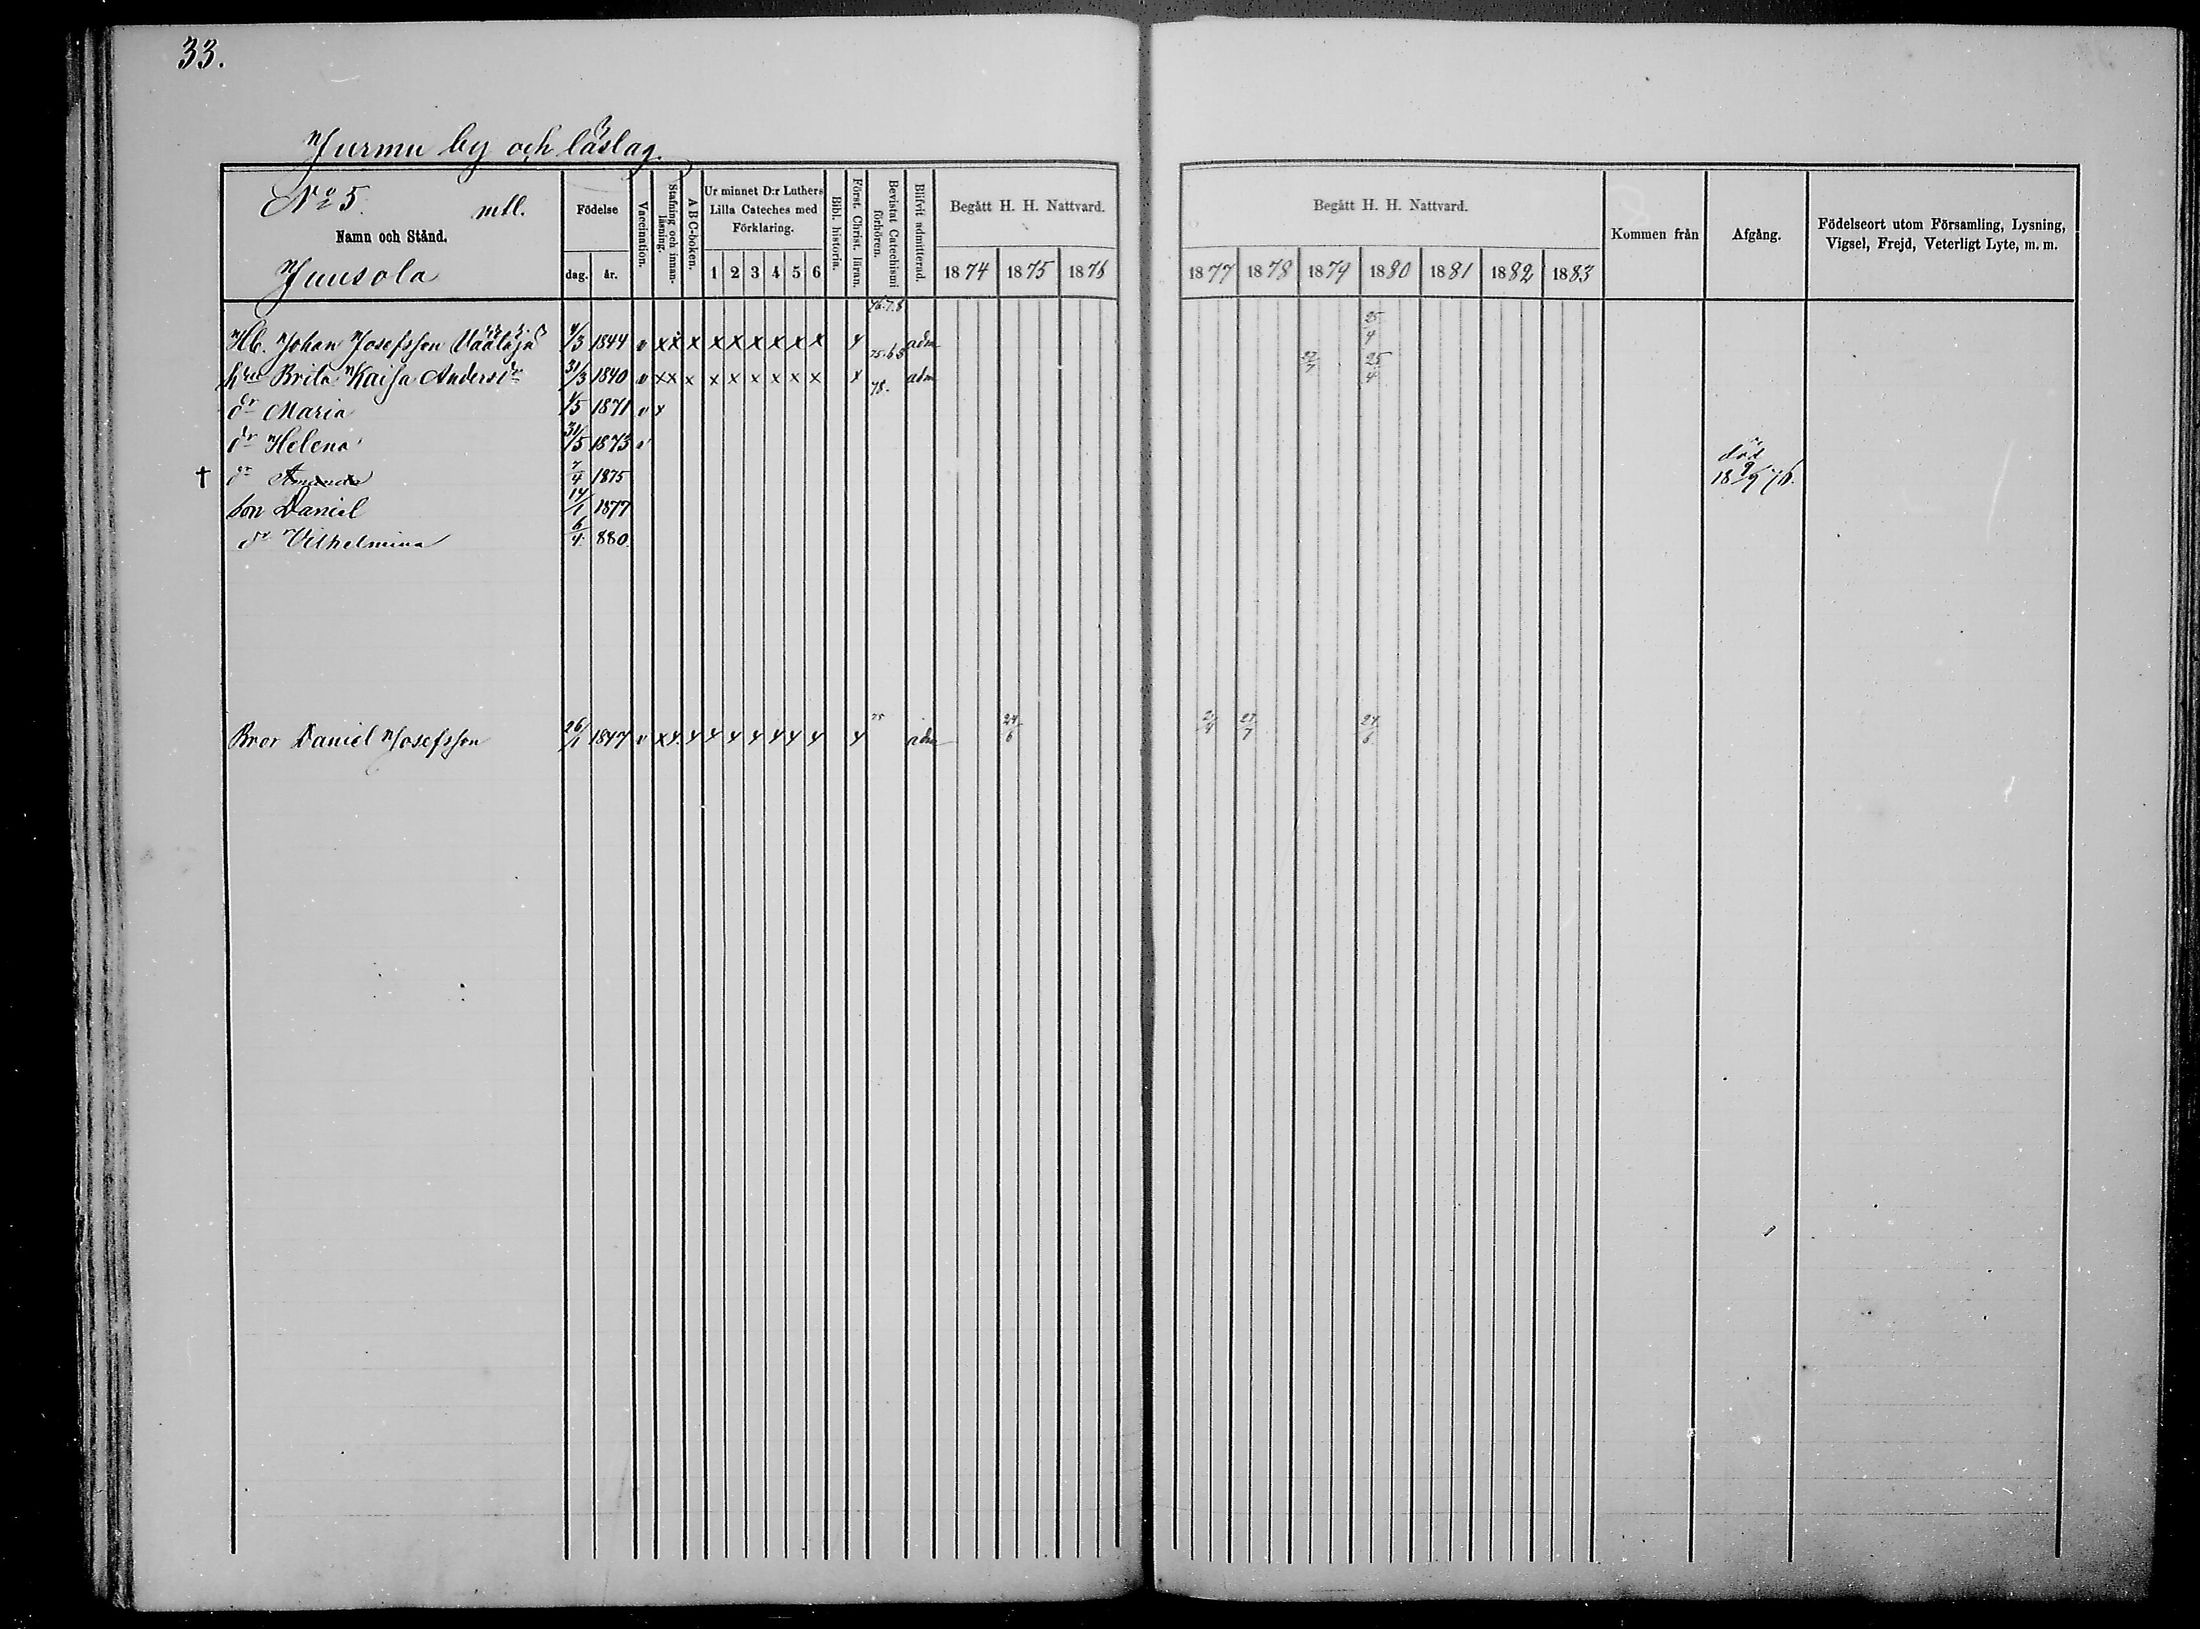 33.
Jurmu by och läslag.
No 5. mtl.
Namn och Stånd.
Juusola
Födelse
dag. år.
Vaccination.
Stafning och innan-läsning.
A B C-boken.
Ur minnet D:r Luthers Lilla Cateches med Förklaring.
1 2 3 4 5 6
Bibl. historia.
Först. Christ. läran.
Bevistat Catechismi förhören.
Blifvit admitterad.
Begått H. H. Nattvard.
1874 1875 1876
Begått H. H. Nattvard.
1877 1878 1879 1880 1881 1882 1883
Kommen från
Afgång.
Födelseort utom Församling, Lysning, Vigsel, Frejd, Veterligt Lyte, m. m.
Hb. Johan Josefsson 4/3 1844 v x x x x x x x x x adm 25/4
hu Brita Kaisa Andersdr 31/3 1840 v x x x x x x x x x x 78. adm 25/4
dr Maria 1871 v x
dr Helena 31/5 1873 v
† dr Amanda 7/4 1875 död 18 9/9 76.
Son Daniel 14/1 1877
dr Vilhelmina 6/4 880
Bror Daniel Josefsson 26/1 1847 v 75 adm 24/6 24/6